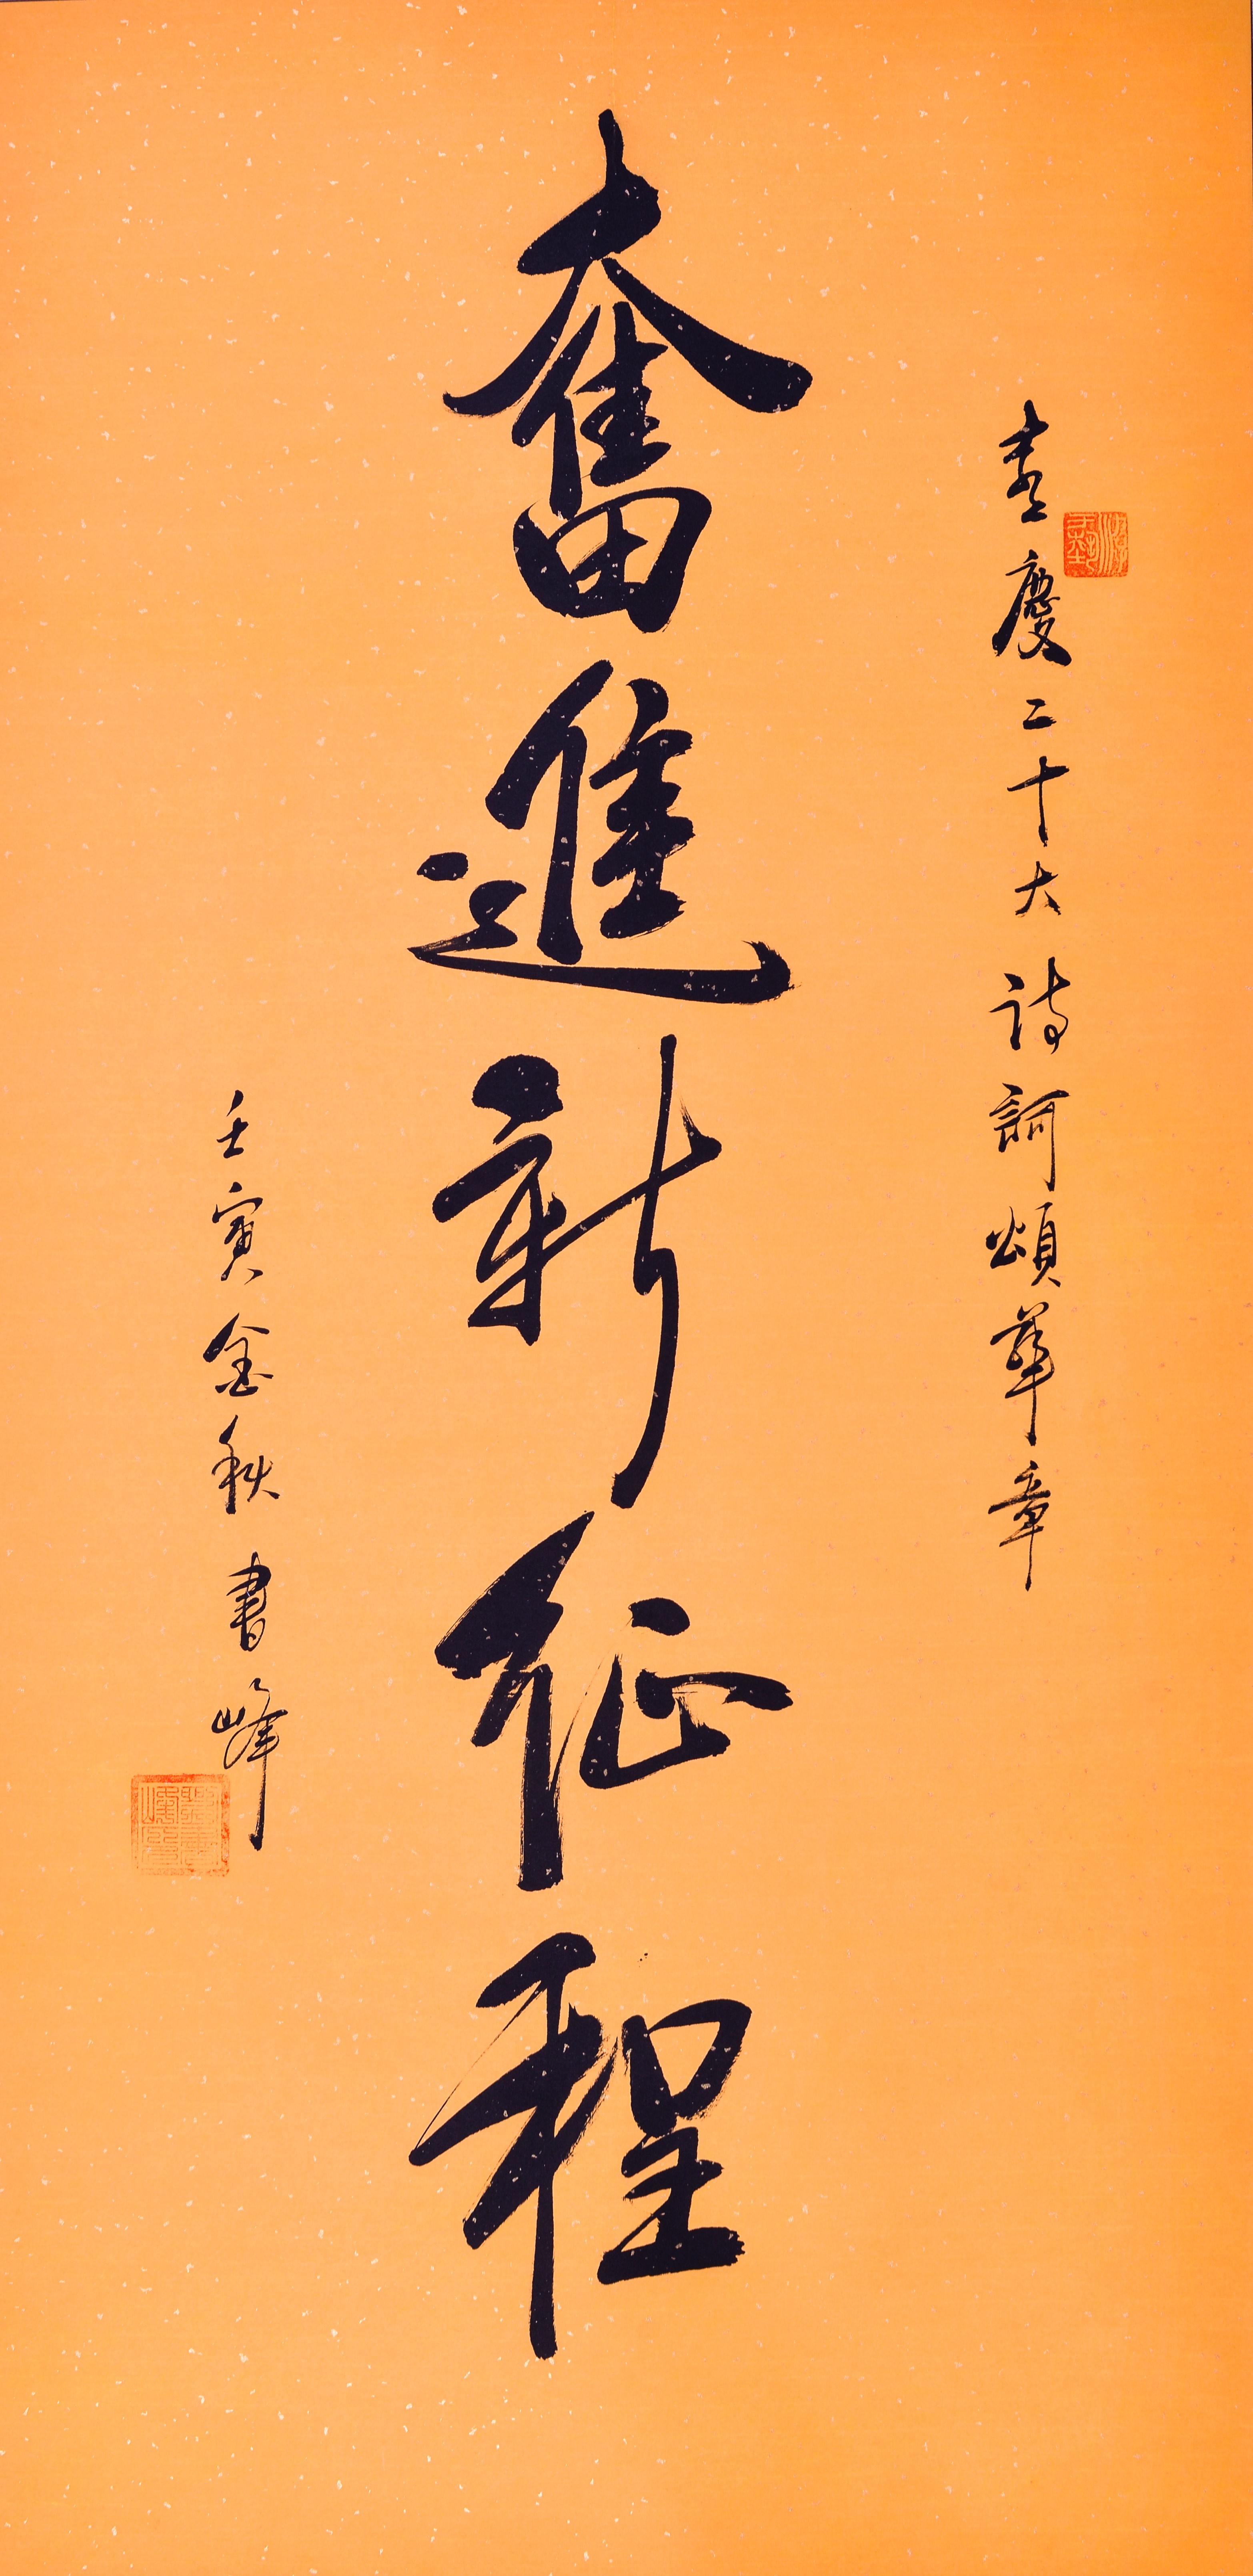 喜慶二十大 詩訶頌華章
奮進新征程
壬寅金秋 書峰